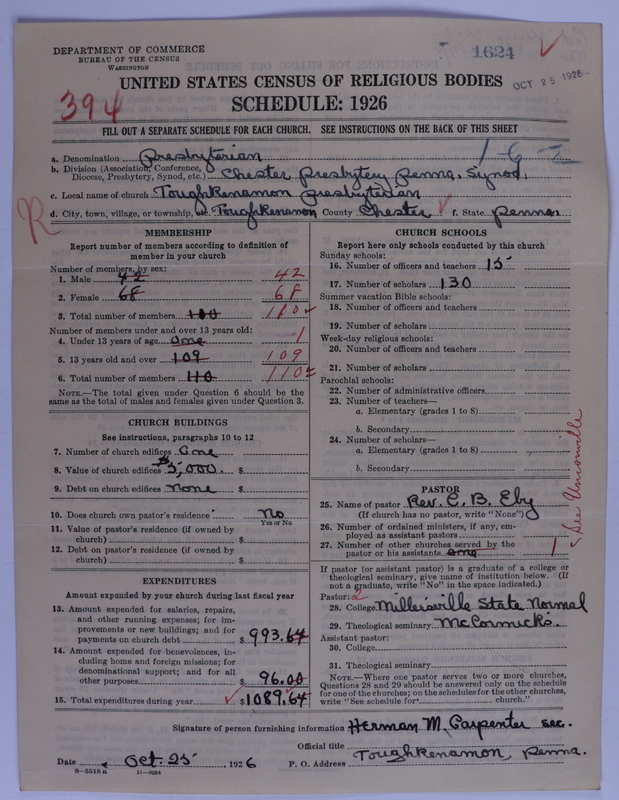 DEPARTMENT OF COMMERCE
BUREAU OF THE CENSUS
WASHINGTON
1624
OCT 25 1926
UNITED STATES CENSUS OF RELIGIOUS BODIES
394
SCHEDULE: 1926
FILL OUT A SEPARATE SCHEDULE FOR EACH CHURCH. SEE INSTRUCTIONS ON THE BACK OF THIS SHEET
a. Denomination Presbyterian
b. Division (Association, Conference, Diocese, Presbytery, Synod, etc.) Chester Presbytery Penna. Synod.
c. Local name of church Toughkenamon Presbyterian
d. City, town, village, or township, etc. Toughkenamon County Chester f. State Penna.
R
MEMBERSHIP
Report number of members according to definition of
member in your church
Number of members, by sex:
1. Male 42 42
2. Female 68 68
3. Total number of members 110 110
Number of members under and over 13 years old:
4. Under 13 years of age One 1
5. 13 years old and over 109 109
6. Total number of members 110 110
NOTE.—The total given under Question 6 should be
same as the total of males and females given under Question 3.
CHURCH BUILDINGS
See instructions, paragraphs 10 to 12
7. Number of church edifices One
8. Value of church edifices $5,000. $
9. Debt on church edifices None $
10. Does church own pastor's residence? No
Yes or No
11. Value of pastor's residence (if owned by
church) $
12. Debt on pastor's residence (if owned by
church) $
EXPENDITURES
Amount expended by your church during last fiscal year
13. Amount expended for salaries, repairs,
and other running expenses; for im-
provements or new buildings; and for
payments on church debt $ 993.64
14. Amount expended for benevolences, in-
cluding home and foreign missions; for
denominational support; and for all
other purposes $ 96.00
15. Total expenditures during year $1089.64
CHURCH SCHOOLS
Report here only schools conducted by this church
Sunday schools:
16. Number of officers and teachers 15
17. Number of scholars 130
Summer vacation Bible schools:
18. Number of officers and teachers
19. Number of scholars
Week-day religious schools:
20. Number of officers and teachers
21. Number of scholars
Parochial schools:
22. Number of administrative officers
23. Number of teachers—
a. Elementary (grades 1 to 8)
b. Secondary
24. Number of scholars—
a. Elementary (grades 1 to 8)
b. Secondary
PASTOR
25. Name of pastor Rev. C. B. Eby
(If church has no pastor, write "None")
26. Number of ordained ministers, if any, em-
ployed as assistant pastors
27. Number of other churches served by the
pastor or his assistants one 1
See Unionville
If pastor (or assistant pastor) is a graduate of a college or
theological seminary, give name of institution below. (If
not a graduate, write "No" in the space indicated.)
Pastor: 2
28. College Millersville State Normal
29. Theological seminary McCormicks
Assistant pastor:
30. College
31. Theological seminary
NOTE.—Where one pastor serves two or more churches,
Questions 28 and 29 should be answered only on the schedule
for one of the churches; on the schedules for the other churches,
write "See schedule for church."
Signature of person furnishing information Herman M. Carpenter sec.
Official title
Date Oct. 25 1926 P. O. Address Toughkenamon, Penna.
8—5518 a 11—9034